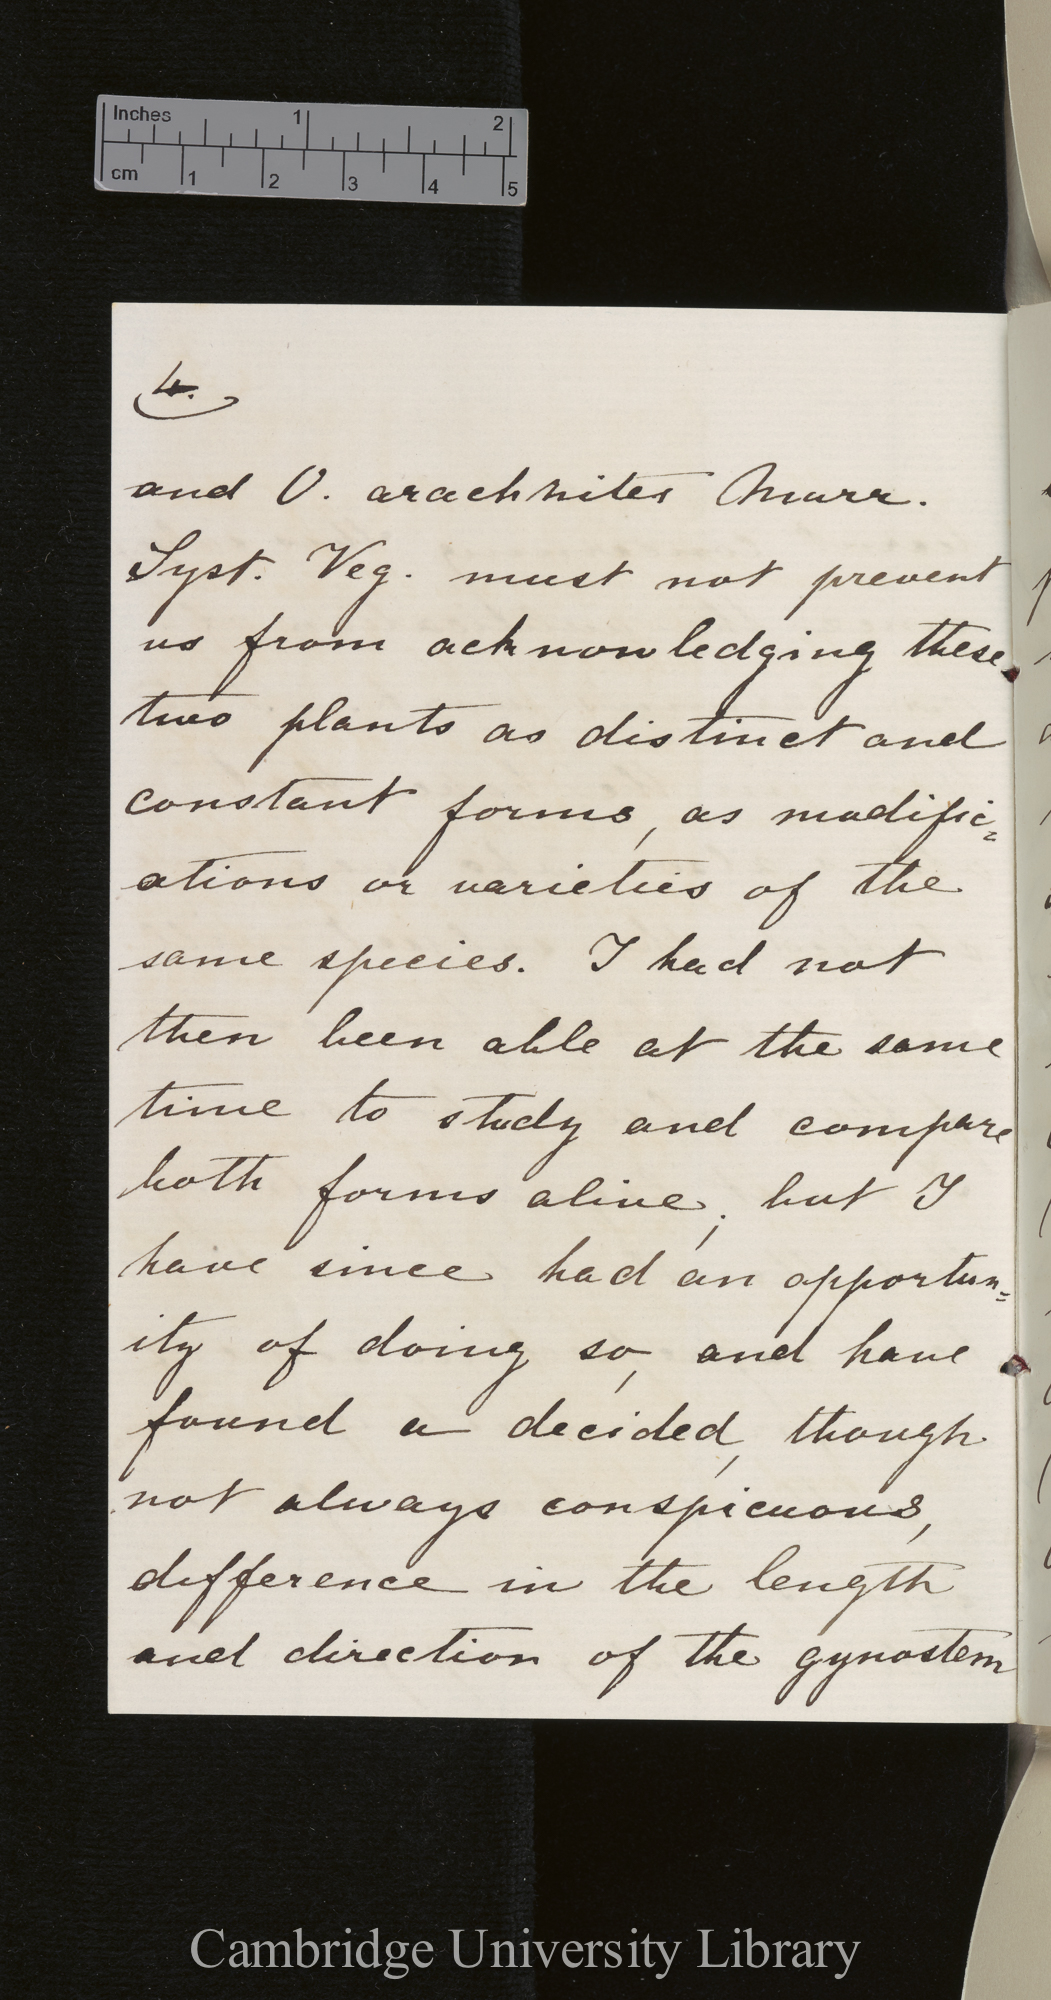 Inches 1 2
cm 1 2 3 4 5
4.
and O. arachnites Murr.
Syst. Veg. must not prevent
us from acknowledging these
two plants as distinct and
constant forms, as modific=
ations or varieties of the
same species. I had not
then been able at the same
time to study and compare
both forms alive; but I
have since had an opportun=
ity of doing so, and have
found a decided, though
not always conspicuous,
difference in the length
and direction of the gynostem
Cambridge University Library